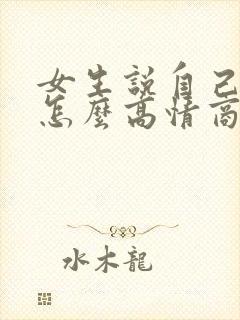 女生說自己
怎麼高情商
水木龍